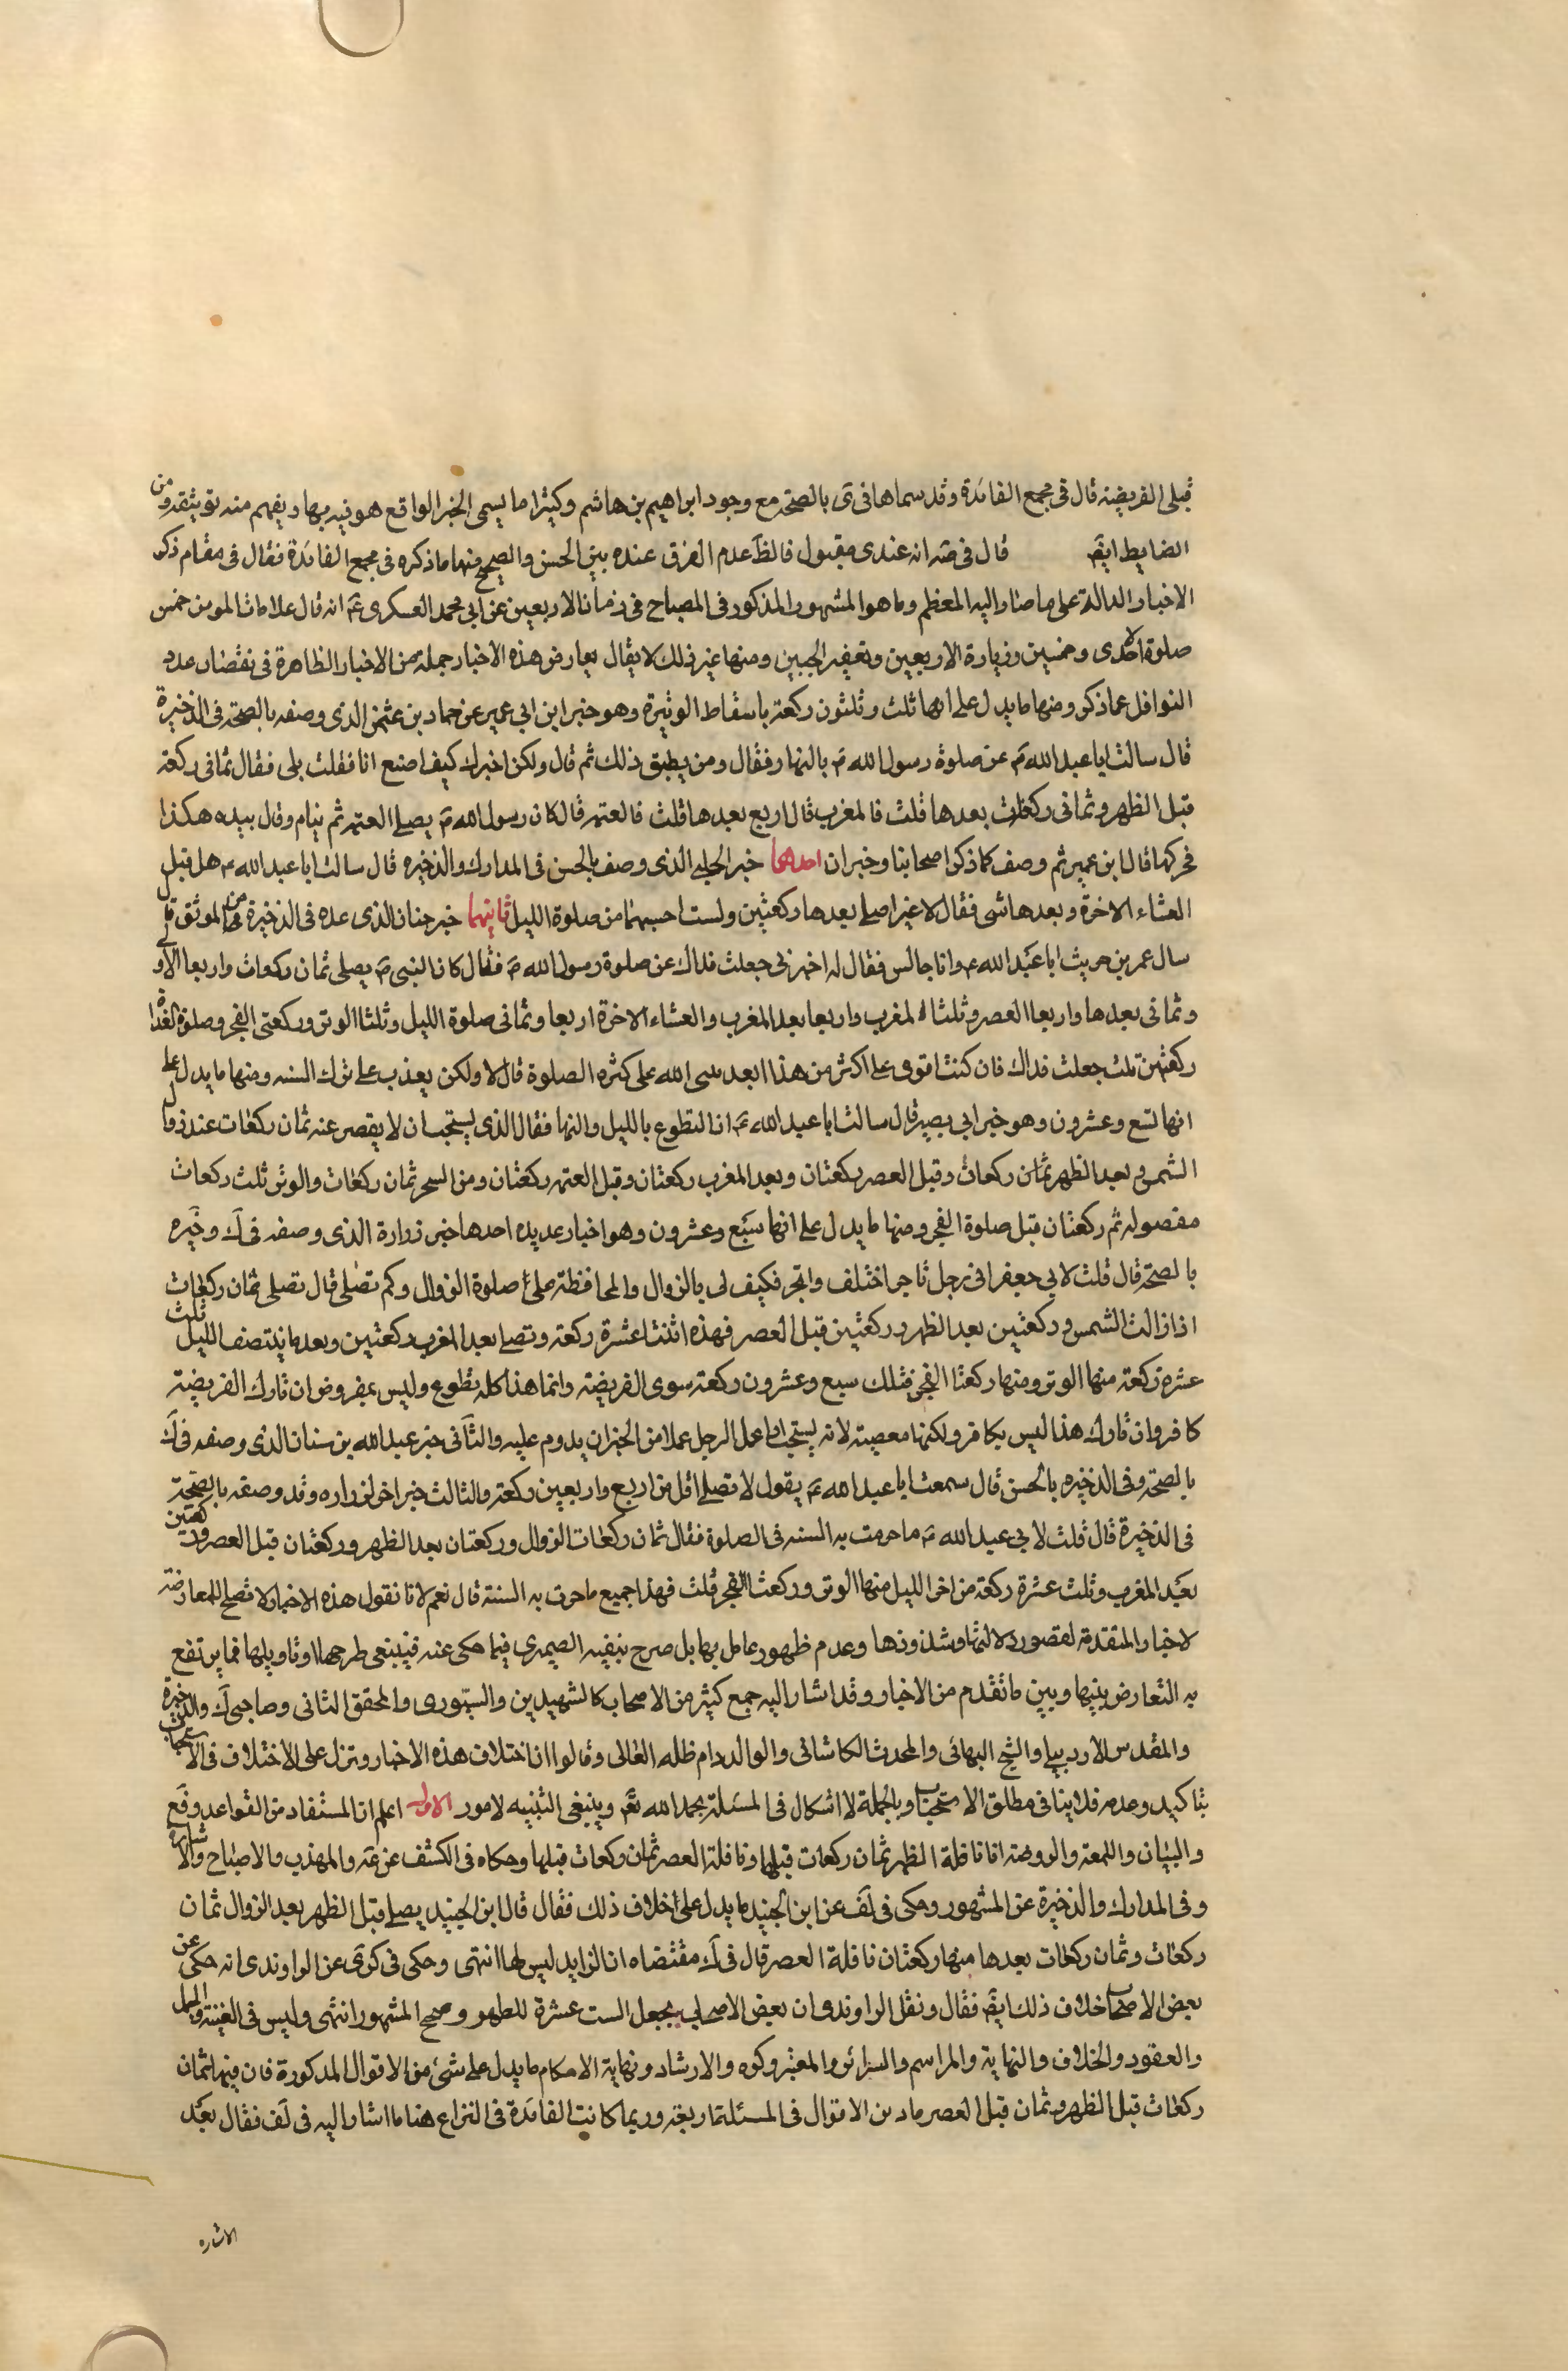 قبلى الفريضة قال فى مجمع الفائدة وقد سماها فى ى بالصحة مع وجود ابراهيم بن هاشم وكثيرا ما يسمى الخبر الواقع هو فيه بها ويفهم منه توثيقه ومن
الضابط ايضا قال فى صه انه عندى مقبول فالظ عدم الفرق عنده بين الحسن والصحيح ومنها ما ذكره فى مجمع الفائدة فقال فى مقام ذكر
الاخبار الدالة على ما صار اليه المعظم وما هو المشهور المذكور فى المصباح فى زماننا الاربعين عن ابى محمد العسكرى ع انه قال علامات المومن خمس
صلوة الاحدى وخمسين وزيارة الاربعين وتعفير الجبين ومنها غير ذلك لا يقال يعارض هذه الاخبار جملة من الاخبار الظاهرة فى نقصان عدد
النوافل عما ذكر ومنها ما يدل على انها ثلث وثلثون ركعة باسقاط الوتيرة وهو خبر ابن ابى عمير عن حماد بن عثمن الذى وصفه بالصحة فى الذخيرة
قال سالت ابا عبد الله ع عن صلوة رسول الله ص بالنهار فقال ومن يطيق ذلك ثم قال ولكن اخبرك كيف اصنع انا فقلت بلى فقال ثمانى ركعة
قبل الظهر وثمانى ركعات بعدها قلت فالمغرب قال اربع بعدها قلت فالعتمة قال كان رسول الله ص يصلى العتمة ثم ينام وقال بيده هكذا
فحركها قال ابن عمير ثم وصف كما ذكر اصحابنا وخبران احدهما خبر الحلبى الذى وصف بالحسن فى المدارك والذخيره قال سالت ابا عبد الله ع هل قبل
العشاء الاخرة وبعدها شى فقال لا غير اصلى بعدها ركعتين ولست احسبهما من صلوة الليل ثانيهما خبر حنان الذى عده فى الذخيرة من الموثق قال
سال عمر بن حريث ابا عبد الله ع وانا جالس فقال له اخبرنى جعلت فداك عن صلوة رسول الله ص فقال كان النبى ص يصلى ثمان ركعات واربعا الاو
وثمانى بعدها واربعا العصر وثلثا المغرب واربعا بعد المغرب والعشاء الاخرة اربعا وثمانى صلوة الليل وثلثا الوتر وركعتى الفجر وصلوة الغداة
ركعتين قلت جعلت فداك فان كنت اقوى على اكثر من هذا ايعذبنى الله على كثرة الصلوة قال لا ولكن يعذب على ترك السنه ومنها ما يدل على
انها تسع وعشرون وهو خبر ابى بصير قال سالت ابا عبد الله ع ان التطوع بالليل والنهار فقال الذى يستحب ان لا يقصر عنه ثمان ركعات عند زوال
الشمس وبعد الظهر ثمان ركعات وقبل العصر ركعتان وبعد المغرب ركعتان وقبل العتمة ركعتان ومن السحر ثمان ركعات والوتر ثلث ركعات
مفصوله ثم ركعتان قبل صلوة الفجر ومنها ما يدل على انها سبع وعشرون وهو اخبار عديده احدها خبر زرارة الذى وصفه فى ك وخيره
بالصحة قال قلت لابى جعفر انى رجل تاجر اختلف واتجر فكيف لى بالزوال والمحافظة على صلوة الزوال وكم تصلى قال تصلى ثمان ركعات
اذا زالت الشمس وركعتين بعد الظهر وركعتين قبل العصر فهذه اثنتا عشرة ركعة وتصلى بعد المغرب ركعتين وبعد ما ينتصف الليل ثلث
عشره ركعة منها الوتر ومنها ركعتا الفجر فتلك سبع وعشرون ركعة سوى الفريضة وانما هذا كله تطوع وليس بمفروض ان تارك الفريضة
كافر وان تارك هذا ليس بكافر ولكنها معصية لانه يستحب اذا عمل الرجل عملا من الخير ان يدوم عليه والثانى خبر عبد الله بن سنان الذى وصفه فى ك
بالصحة وفى الذخيره بالحسن قال سمعت ابا عبد الله ع يقول لا تصلى اقل من اربع واربعين ركعة والثالث خبر اخر لزراره وقد وصفه بالصحة
فى الذخيرة قال قلت لابى عبد الله ع ما جرت به السنه فى الصلوة فقال ثمان ركعات الزوال وركعتان بعد الظهر وركعتان قبل العصر وركعتين
بعد المغرب وثلث عشرة ركعة من اخر الليل منها الوتر وركعتا الفجر قلت فهذا جميع ما جرت به السنة قال نعم لانا نقول هذه الاخبار لا تصلح للمعارضة
لاخبار المتقدمة لقصور دلالتها وشذوذها وعدم ظهور عامل بها بل صرح بنفيه الصيمرى فيما حكى عنه فينبغى طرحها او تاويلها فما يرتفع
به التعارض بينها وبين ما تقدم من الاخبار وقد اشار اليه جمع كثير من الاصحاب كالشهيدين والسيورى والمحقق الثانى وصاحبى ك والذخيرة
والمقدس الاردبيلى والشيخ البهائى والمحدث الكاشانى والوالد دام ظله العالى وقالوا ان اختلاف هذه الاخبار وتنزل على الاختلاف فى الاستحباب
بتاكيد وعدمه فلا ينافى مطلق الاستحباب وبالجملة لا اشكال فى المسئلة بحمد الله تعم وينبغى التنبيه لامور الاول اعلم ان المستفاد من القواعد وفع
والبيان واللمعة والروضة ان نافلة الظهر ثمان ركعات قبلها ونافلة العصر ثمان ركعات قبلها وحكاه فى الكشف عن عه والمهذب والاصباح والاشارة
وفى المدارك والذخيرة عن المشهور وحكى فى لف عن ابن الجنيد ما يدل على خلاف ذلك فقال قال ابن الجنيد يصلى قبل الظهر بعد الزوال ثمان
ركعات وثمان ركعات بعدها منها ركعتان نافلة العصر قال فى ك مقتضاه ان الزايد ليس لها انتهى وحكى فى كرى عن الراوندى انه حكى عن
بعض الاصحاب خلاف ذلك ايضا فقال ونقل الراوندى ان بعض الاصحاب يجعل الست عشرة للظهر وصحح المشهور انتهى وليس فى الغنية والجمل
والعقود والخلاف والنهاية والمراسم والسرائر والمعتبر وكره والارشاد ونهاية الاحكام ما يدل على شئ من الاقوال المذكورة فان فيها ثمان
ركعات قبل الظهر وثمان قبل العصر من الاقوال فى المسئلة اربعة وربما كانت الفائدة فى النزاع هنا ما اشار اليه فى لف فقال بعد
الاشاره